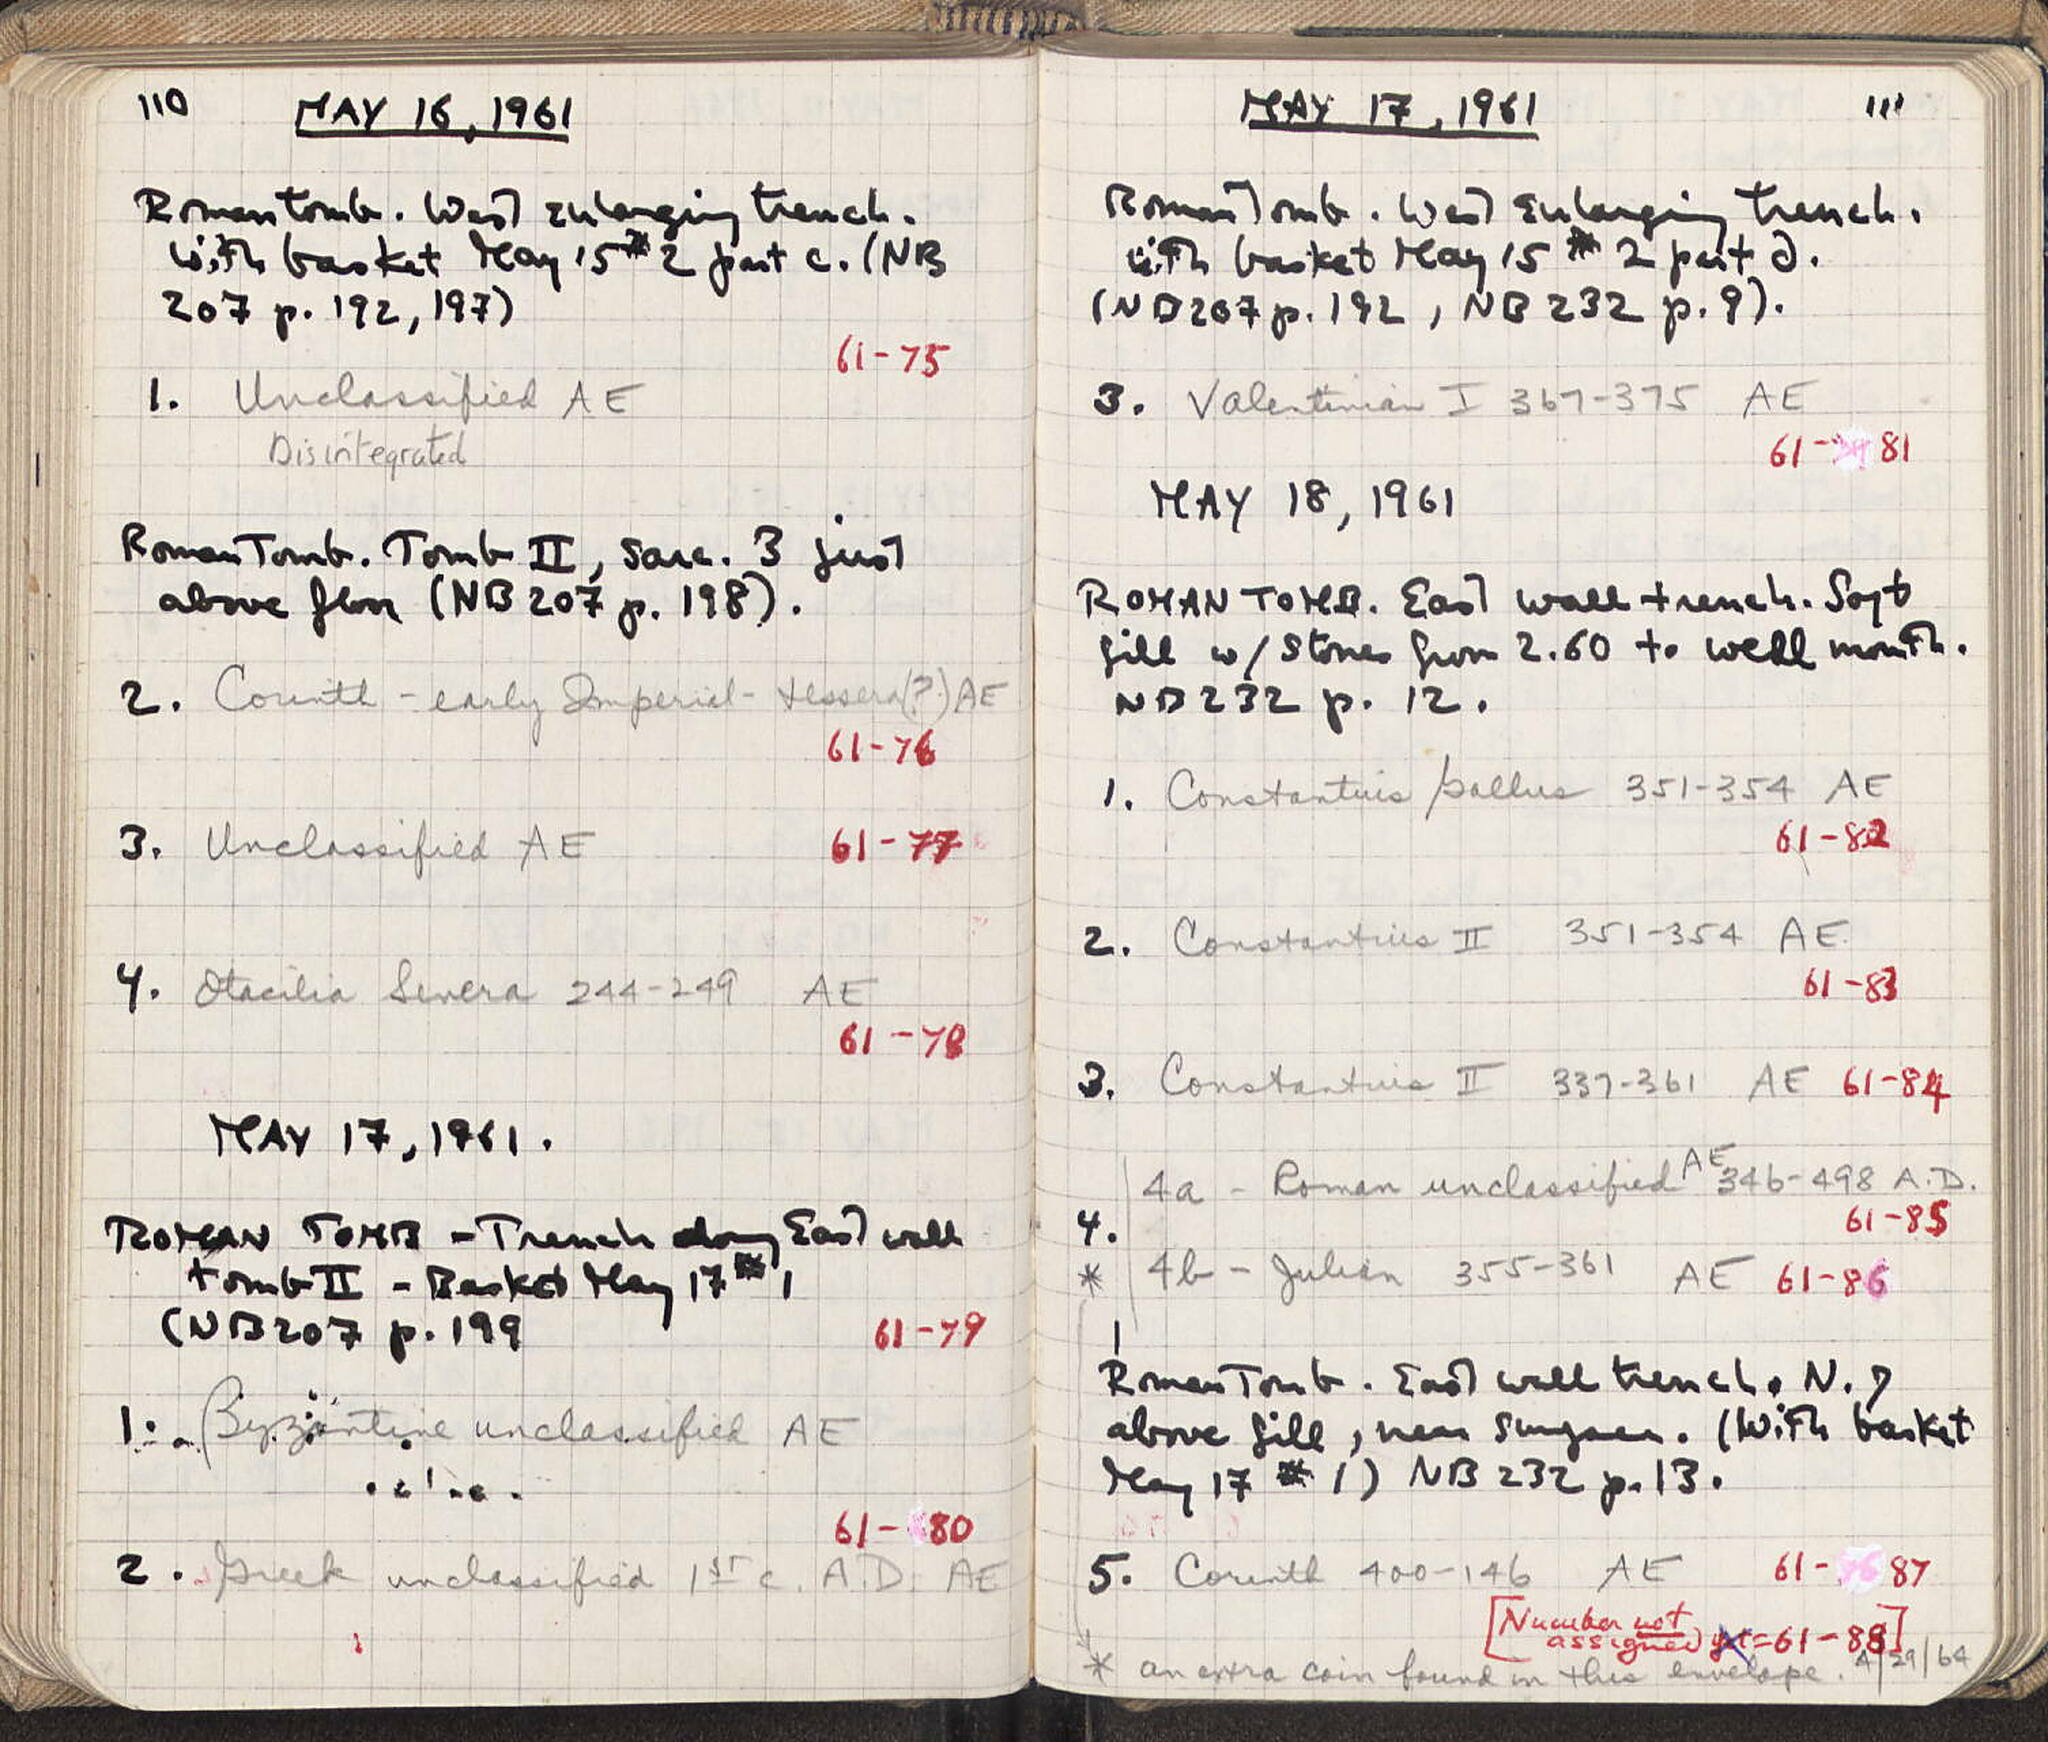 110
MAY 16, 1961
Roman tomb. West enlarging trench.
with basket May 15 #2 part c. (NB
207 p. 192, 197)
61-75
1. Unclassified AE
Disintegrated
Roman Tomb. Tomb II, Sarc. 3 just
above floor (NB 207 p. 198).
2. Corinth - early Imperial - tessera(?) AE
61-76
3. Unclassified AE 61-77
4. Otacilia Severa 244-249 AE
61-78
MAY 17, 1961.
ROMAN TOMB - Trench along East wall
tomb II - Basket May 17 #1
(NB 207 p. 199
61-79
1. Byzantine unclassified AE
61-80
2. Greek unclassified 1st c. A.D. AE
MAY 17, 1961
111
Roman Tomb. West Enlarging trench.
with basket May 15 #2 part d.
(NB 207 p. 192, NB 232 p. 9).
3. Valentinian I 367-375 AE
61-81
MAY 18, 1961
ROMAN TOMB. East wall trench. Soft
fill w/ stones from 2.60 to well mouth.
NB 232 p. 12.
1. Constantius Gallus 351-354 AE
61-82
2. Constantius II 351-354 AE
61-83
3. Constantius II 337-361 AE 61-84
4a - Roman unclassified AE 346-498 A.D.
61-85
4.
* 4b - Julian 355-361 AE 61-86
Roman Tomb. East wall trench. N.
above fill, near. (With basket
May 17 #1) NB 232 p. 13.
5. Corinth 400-146 AE 61-87
[Number not
assigned = 61-88]
* an extra coin found in this envelope. 4/29/64